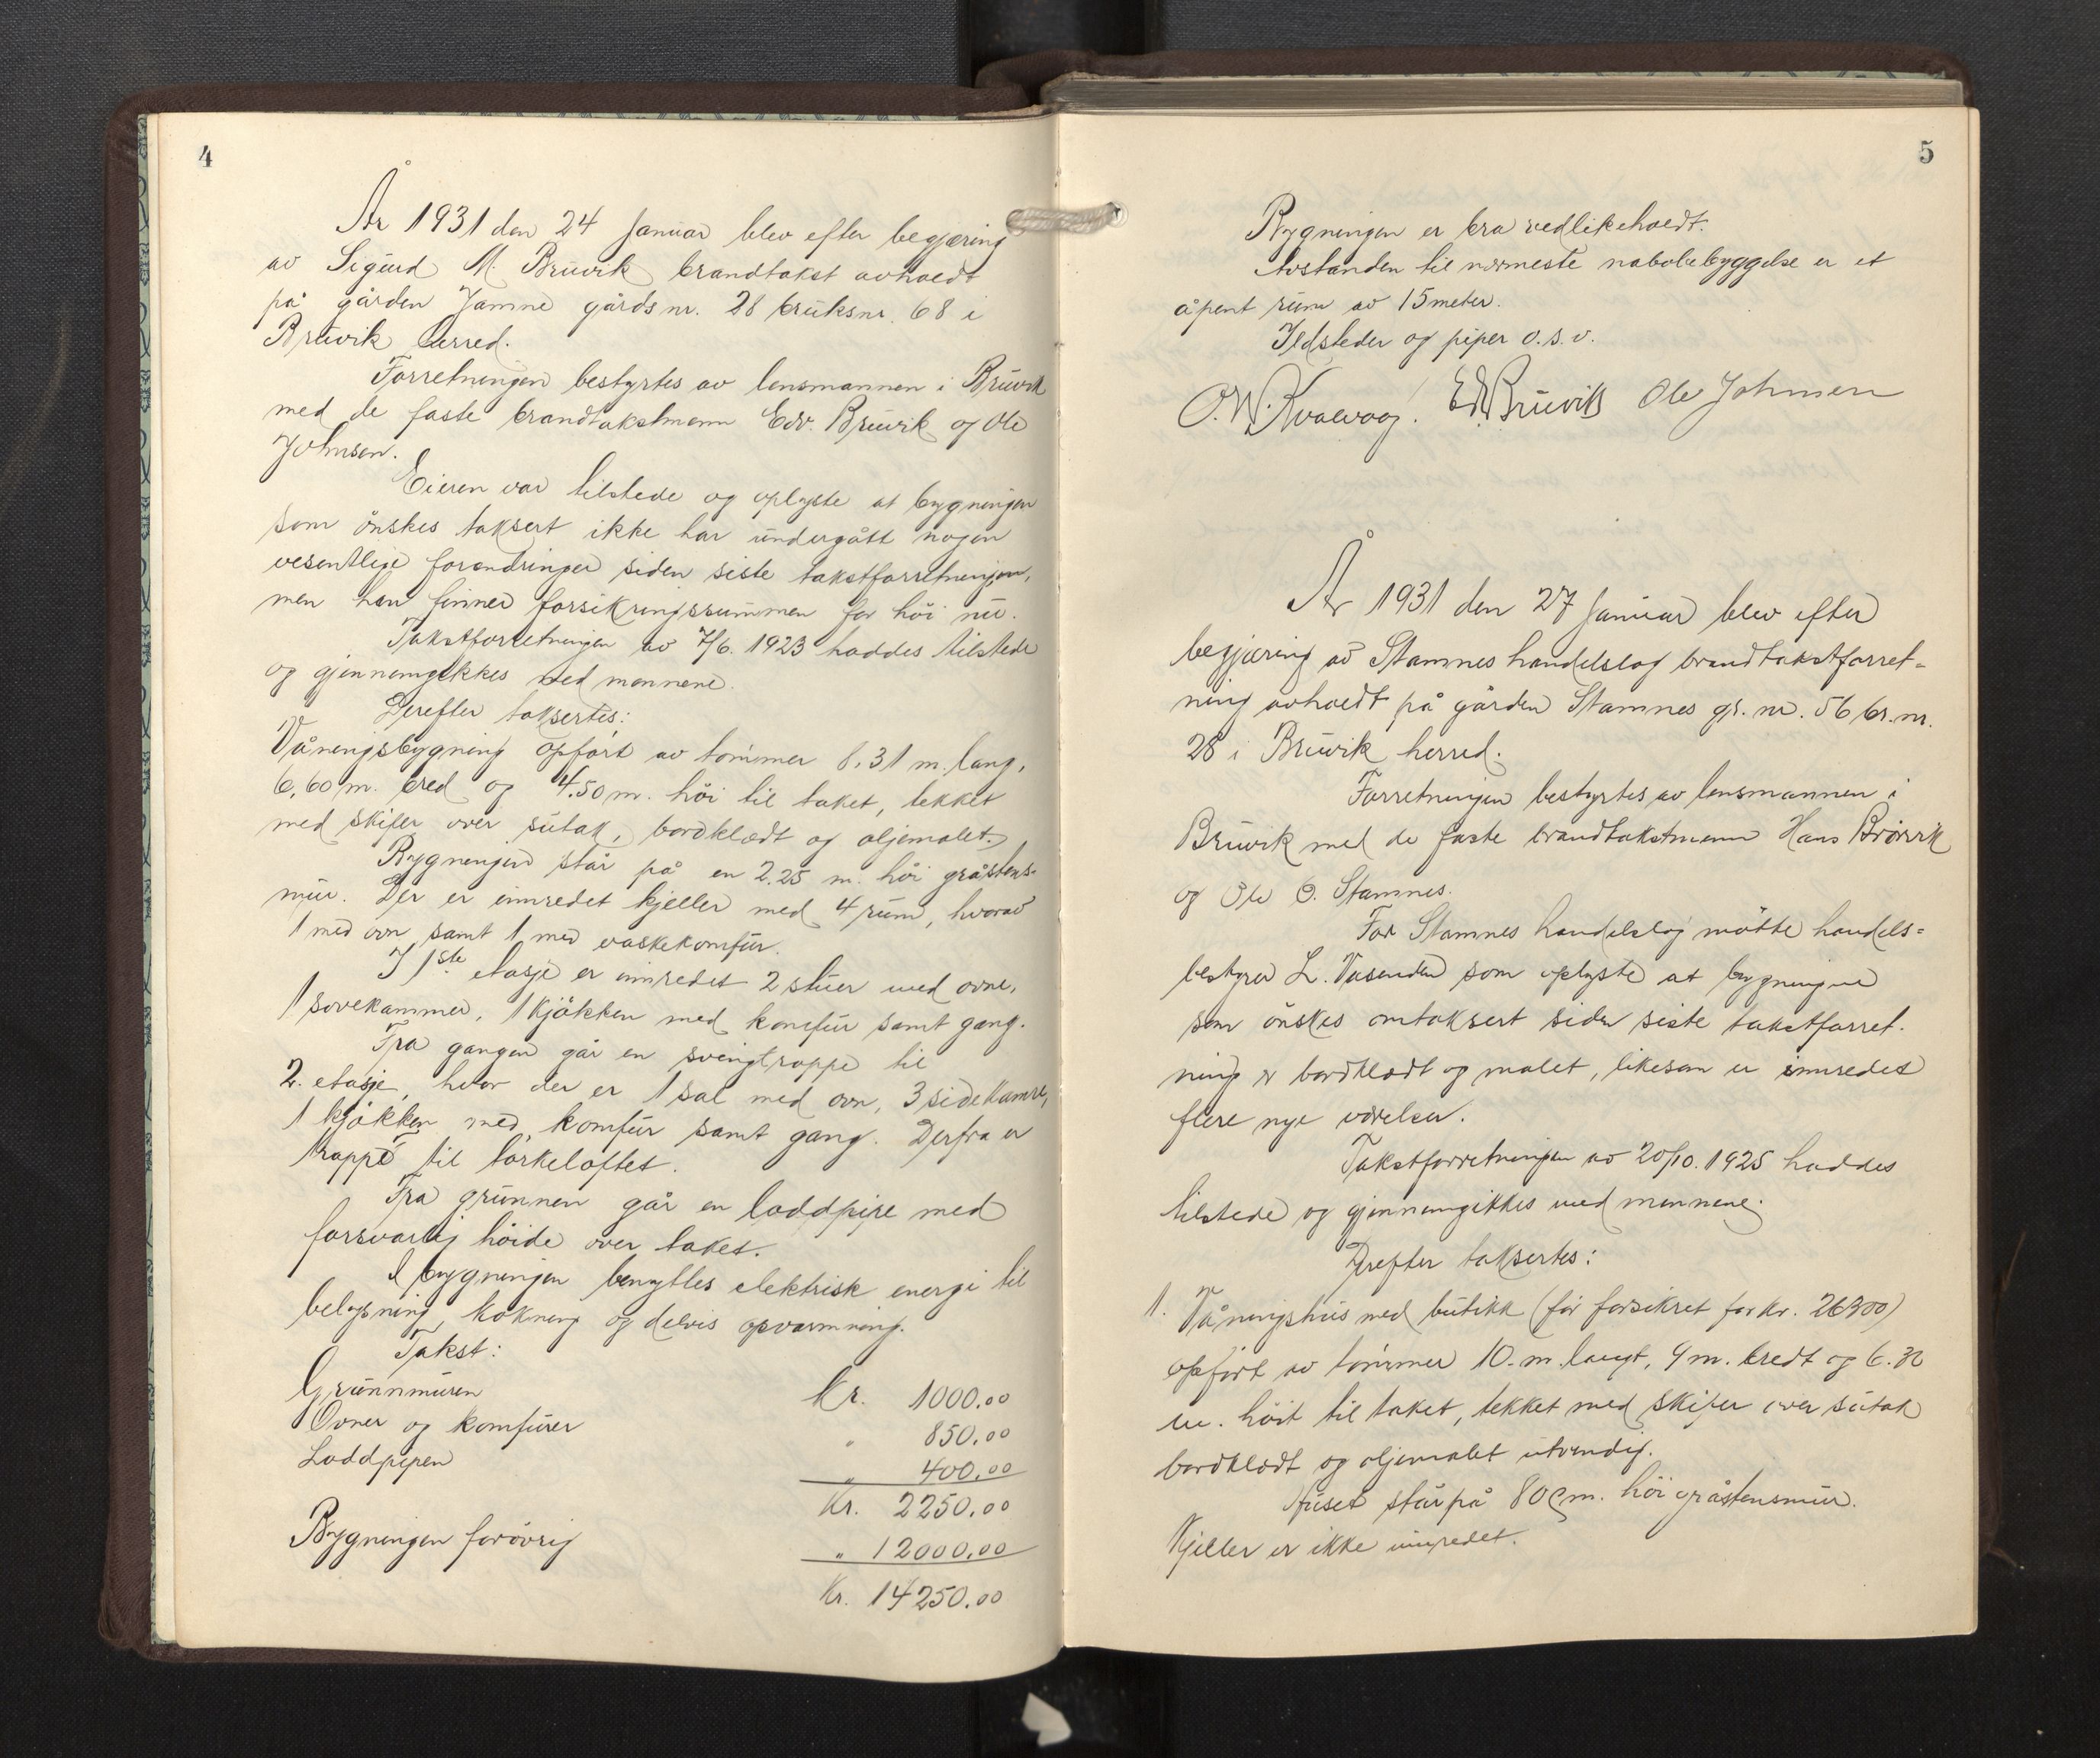 4
År 1931 den 24 Januar blev efter begjæring
av Sigurd M. Bruvik brandtakst avholdt
på gården Jamne gårds nr. 28 bruksnr. 68 i
Bruvik herred.
Forretningen bestyrtes av lensmannen i Bruvik
med de faste brandtakstmenn Edv. Bruvik og Ole
Johnsen.
Eieren var tilstede og oplyste at bygningen
som önskes taksert ikke har undergått nogen
vesentlige forandringer siden siste takstforretningen,
men han finner forsikringssummen for höi nu.
Takstforretningen av 7/6. 1923 haddes tilstede
og gjennemgikkes med mennene.
Derefter taksertes:
Våningsbygning opfört av tömmer 8,31 m. lang,
6,60 m. bred og 4.50 m. höi til taket, tekket
med skifer over sutak, bordklædt og oljemalet.
Bygningen står på en 2.25 m. höi gråstens-
mur. Der er innredet kjeller med 4 rum, hvorav
1 med ovn samt 1 med vaskekomfur.
I 1ste etasje er innredet 2 stuer med ovne,
1 sovekammer, 1 kjökken med komfur samt gang.
Fra gangen går en svingtrappe til
2. etasje, hvor der er 1 sal med ovn, 3 sidekamre,
1 kjökken med komfur samt gang. Derfra er
trappe til törkeloftet.
Fra grunnen går en loddpipe med
forsvarlig höide over taket.
I bygningen benyttes elektrisk energi til
belysning, kokning og delvis opvarmning.
Takst:
Grunnmuren Kr. 1000.00
Ovner og komfurer " 850.00
Loddpipen " 400.00
Kr. 2250.00
Bygningen forövrig " 12000.00
Kr. 14250.00
5
Bygningen er bra vedlikeholdt.
Avstanden til nærmeste nabobebyggelse er et
åpent rum av 15 meter.
Ildsteder og piper o.s.v.
O. W. Kvalvaag. Edv Bruvik Ole Johnsen
År 1931 den 27 Januar blev efter
begjæring av Stamnes handelslag brandtakstforret-
ning avholdt på gården Stamnes gr. nr. 56 br. nr.
28 i Bruvik herred.
Forretningen bestyrtes av lensmannen i
Bruvik med de faste brandtakstmenn Hans
og Ole O. Stamnes.
For Stamnes handelslag mötte handels-
bestyrer L. Vasenden som oplyste at bygningene
som önskes omtaksert siden siste takstforret-
ning er bordklædt og malet, likesom er innredet
flere nye værelser.
Takstforretningen av 20/10. 1925 haddes
tilstede og gjennemgikkes med mennene.
Derefter taksertes:
1. Våningshus med butikk (för forsikret for kr. 26300)
opfört av tömmer 10. m. langt, 9 m. bredt og 6.30
m. höit til taket, tekket med skifer over sutak
bordklædt og oljemalet utvendig.
Huset står på 80 cm. höi gråstensmur.
Kjeller er ikke innredet.